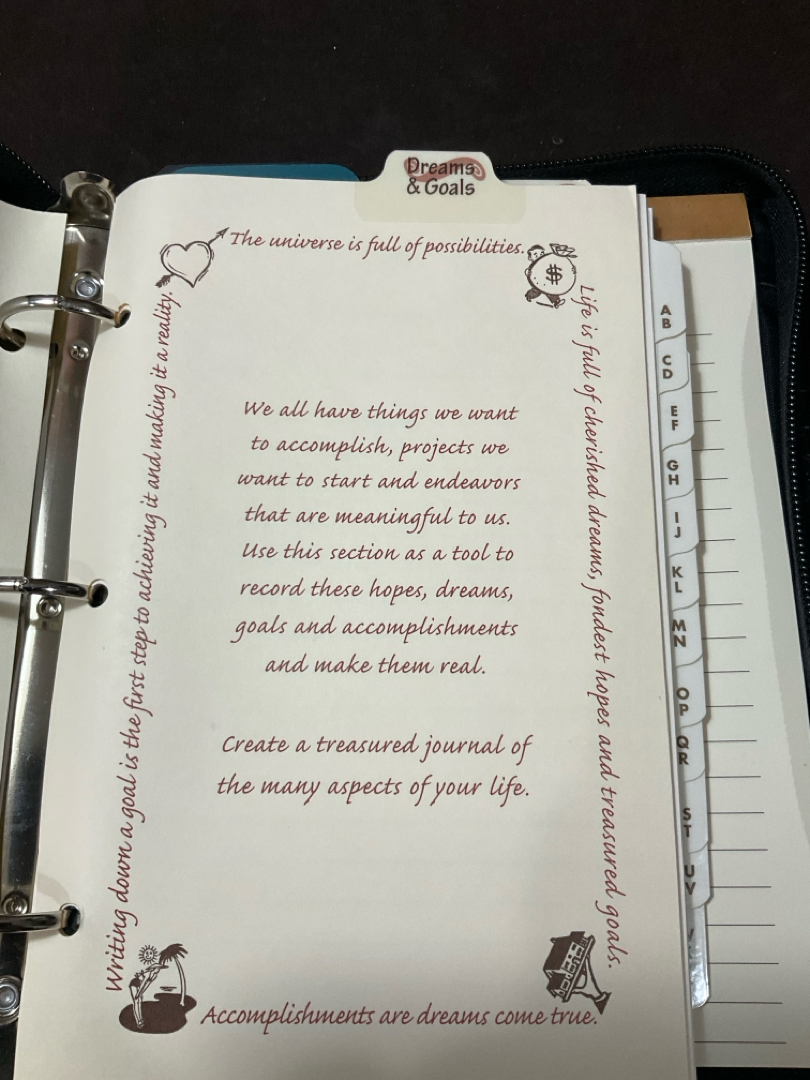 Dreams
& Goals
The universe is full of possibilities.
$
Life is full of cherished dreams, fondest hopes and treasured goals.
Writing down a goal is the first step to achieving it and making it a reality.
We all have things we want
to accomplish, projects we
want to start and endeavors
that are meaningful to us.
Use this section as a tool to
record these hopes, dreams,
goals and accomplishments
and make them real.
Create a treasured journal of
the many aspects of your life.
Accomplishments are dreams come true.
A
B
C
D
E
F
G
H
I
J
K
L
M
N
O
P
Q
R
S
T
U
V